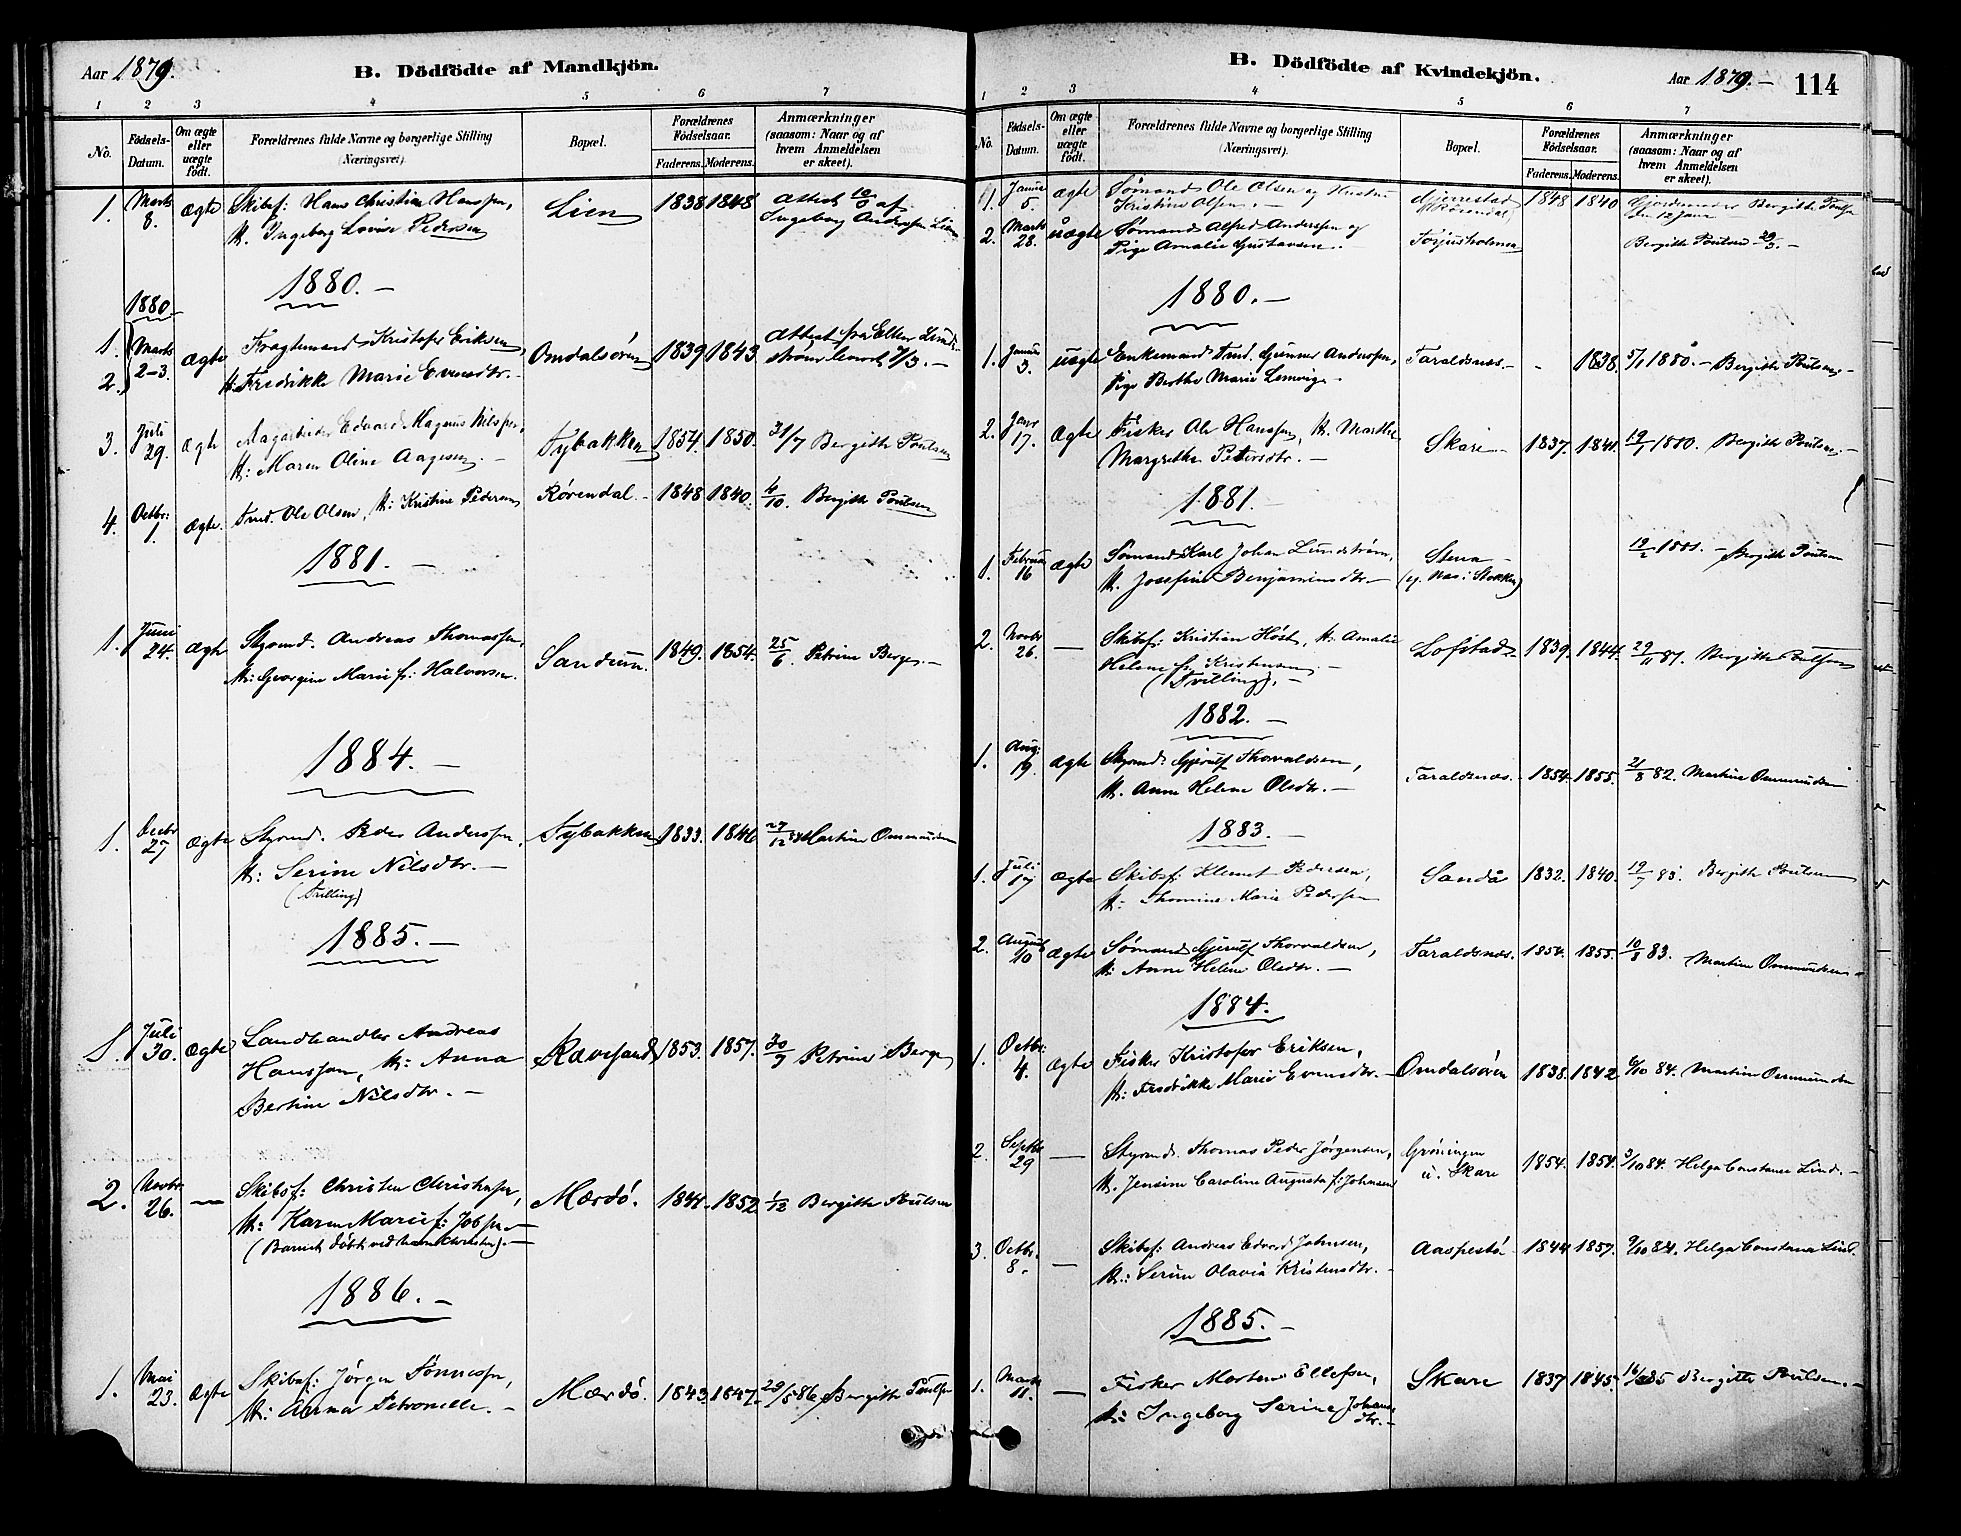 Aar 1879.
B. Dödfödte af Mandkjön.
1 2 3 4 5 6 7
No.
Födsels-Datum.
Om ægte eller uægte födt.
Forældrenes fulde Navne og borgerlige Stilling
(Næringsvei).
Bopæl.
Forældrenes Födselsaar.
Faderens. Moderens.
Anmærkninger
(saasom: Naar og af
hvem Anmeldelsen
er skeet).
1. Marts 8. Ægte Skibsf: Hans Christian Hanssen, Lien 1838 1848 Attest 10/3 af
H. Ingeborg Lovise Pedersen Ingeborg Anderssen Lien
1880. —
1880.
1. 2. Marts 2-3. Ægte Fragtemand Kristofer Eriksen, Omdalsøren 1839 1843. Attest fra Ellen Lind-
H: Fredrikke Marie Evensdtr. — 7/3. —
3. Juli 29. Ægte Edvard Magnus Nilssen, Tybakken 1854. 1850. 31/7 Bergitte Poulsen
H: Maren Oline Aagesen. —
4. Octbr: 1. Ægte. Ole Olsen, H: Kristine Pedersen Rørendal. — 1848 1840. 4/10. Bergitte Poulsen
1881. —
1. Juni 24. Ægte Styrmd. Andreas Thomassen, Sandum. 1849. 1854. 25/6. Petrine Berge. —
H: Georgine Marie f: Halvorsen.
1884. —
1. Decbr 27 Ægte Styrmd. Peder Anderssen, Tybakken 1833. 1846 27/12 84 Martine Osmundsen
H: Serine Nilsdtr. —
(Tvilling)
1885. —
1. Juli 30. Ægte Landhandler Andreas Revesand 1853. 1857. 30/7 Petrine Berge
Hanssen, H: Anna
Bertine Nilsdtr. —
2. Novbr 26. — Skibsf: Christen Christensen, Mærdö. 1841. 1852 1/12 Bergitte Poulsen
H: Karen Marie f: Jobsen —
(Barnet døbt ved Navn Christen). —
1886. —
1. Mai 23. Ægte Skibsf: Jörgen Tönnessen, Mærdö. 1843. 1847. 28/5 86 Bergitte Poulsen
H: Anna Petronelle. —
B. Dödfödte af Kvindekjön.
Aar 1879. — 114
1 2 3 4 5 6 7
No.
Födsels-Datum.
Om ægte eller uægte födt.
Forældrenes fulde Navne og borgerlige Stilling
(Næringsvei).
Bopæl.
Forældrenes Födselsaar.
Faderens. Moderens.
Anmærkninger
(saasom: Naar og af
hvem Anmeldelsen
er skeet).
1. Januar 5. Ægte Sømand Ole Olsen og Hustru Gjerrestad 1848 1840 Gjordemoder Bergitte Poulsen
Kristine Olsen. — Rørendal den 12 Janr
2. Marts 28. uægte Sømand Alfred Anderssen og Torjusholmen Bergitte Poulsen 29/3. —
Pige Amalie Gustavsen.
1880. —
1. Januar 3. uægte Enkemand Gunner Anderssen, Taraldsnes. — - 1838. 5/1 1880. — Bergitte Poulsen. —
Pige Berthe Marie Lemvig. —
2. Janr 17. Ægte Fisker Ole Hanssen, H. Marthe Skare — 1837. 1841. 19/1 1880. Bergitte Poulsen. —
Margrethe Petersdtr. —
1881. —
1. Februar 16 Ægte Sømand Karl Johan Lundstrøm, 19/2 1881. — Bergitte Poulsen
H. Josefine Benjaminsdtr. —
2. Novbr 26. — Skibsf: Kristian Höst, H. Amalie Lofstad 1839. 1844. 29/11 81. Bergitte Poulsen
Helene f: Kristensen. —
(Tvilling). —
1882. —
1. Aug: 19. Ægte Styrmd. Gjerulf Thorvaldsen, Taraldsnes. 1854. 1855. 21/8 82. Martine Osmundsen
H. Anne Helene Olsdtr. —
1883. —
1. Juli 17 Ægte Skibsf: Klemet Pedersen, Sandå 1832. 1840. 19/7 83. Bergitte Poulsen
H: Thomine Marie Pedersen
2. August 10 Ægte Sømand Gjerulf Thorvaldsen, Taraldsnes. 1854. 1855. 10/8 83. Martine Osmundsen
H: Anne Helene Olsdtr. —
1884.
1. Octbr: 4. Ægte Fisker Kristofer Eriksen, Omdalsøren 1838. 1842 6/10 84. Martine Osmundsen
H: Fredrikke Marie Evensdtr. —
2. Septbr 29 — Styrmd. Thomas Peder Jørgensen, Grøningen 1854. 1854. 3/10 84. Helga Constance Lind. —
H. Jensine Caroline Augusta f: Johansen u. Skare
3. Octbr. 8. — Skibsf: Andreas Edvard Johnsen, Aaspestø. 1844 1857. 9/10 84. Helga Constance Lind.
H: Serine Olavia Kristensdtr. —
1885. —
1. Marts 11. — Fisker Morten Ellefsen, Skare 1837 1845. 16/3 85 Bergitte Poulsen. —
H: Ingeborg Serine Johansdtr. —